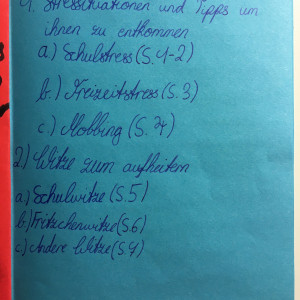 1. Stresssituationen und Tipps um
ihnen zu entkommen
a.) Schulstress (S. 1-2)
b.) Freizeitstress (S. 3)
c.) Mobbing (S. 4)
2) Witze zum aufheitern
a.) Schulwitze (S. 5)
b.) Fritzchenwitze (S. 6)
c.) Andere Witze (S. 7)